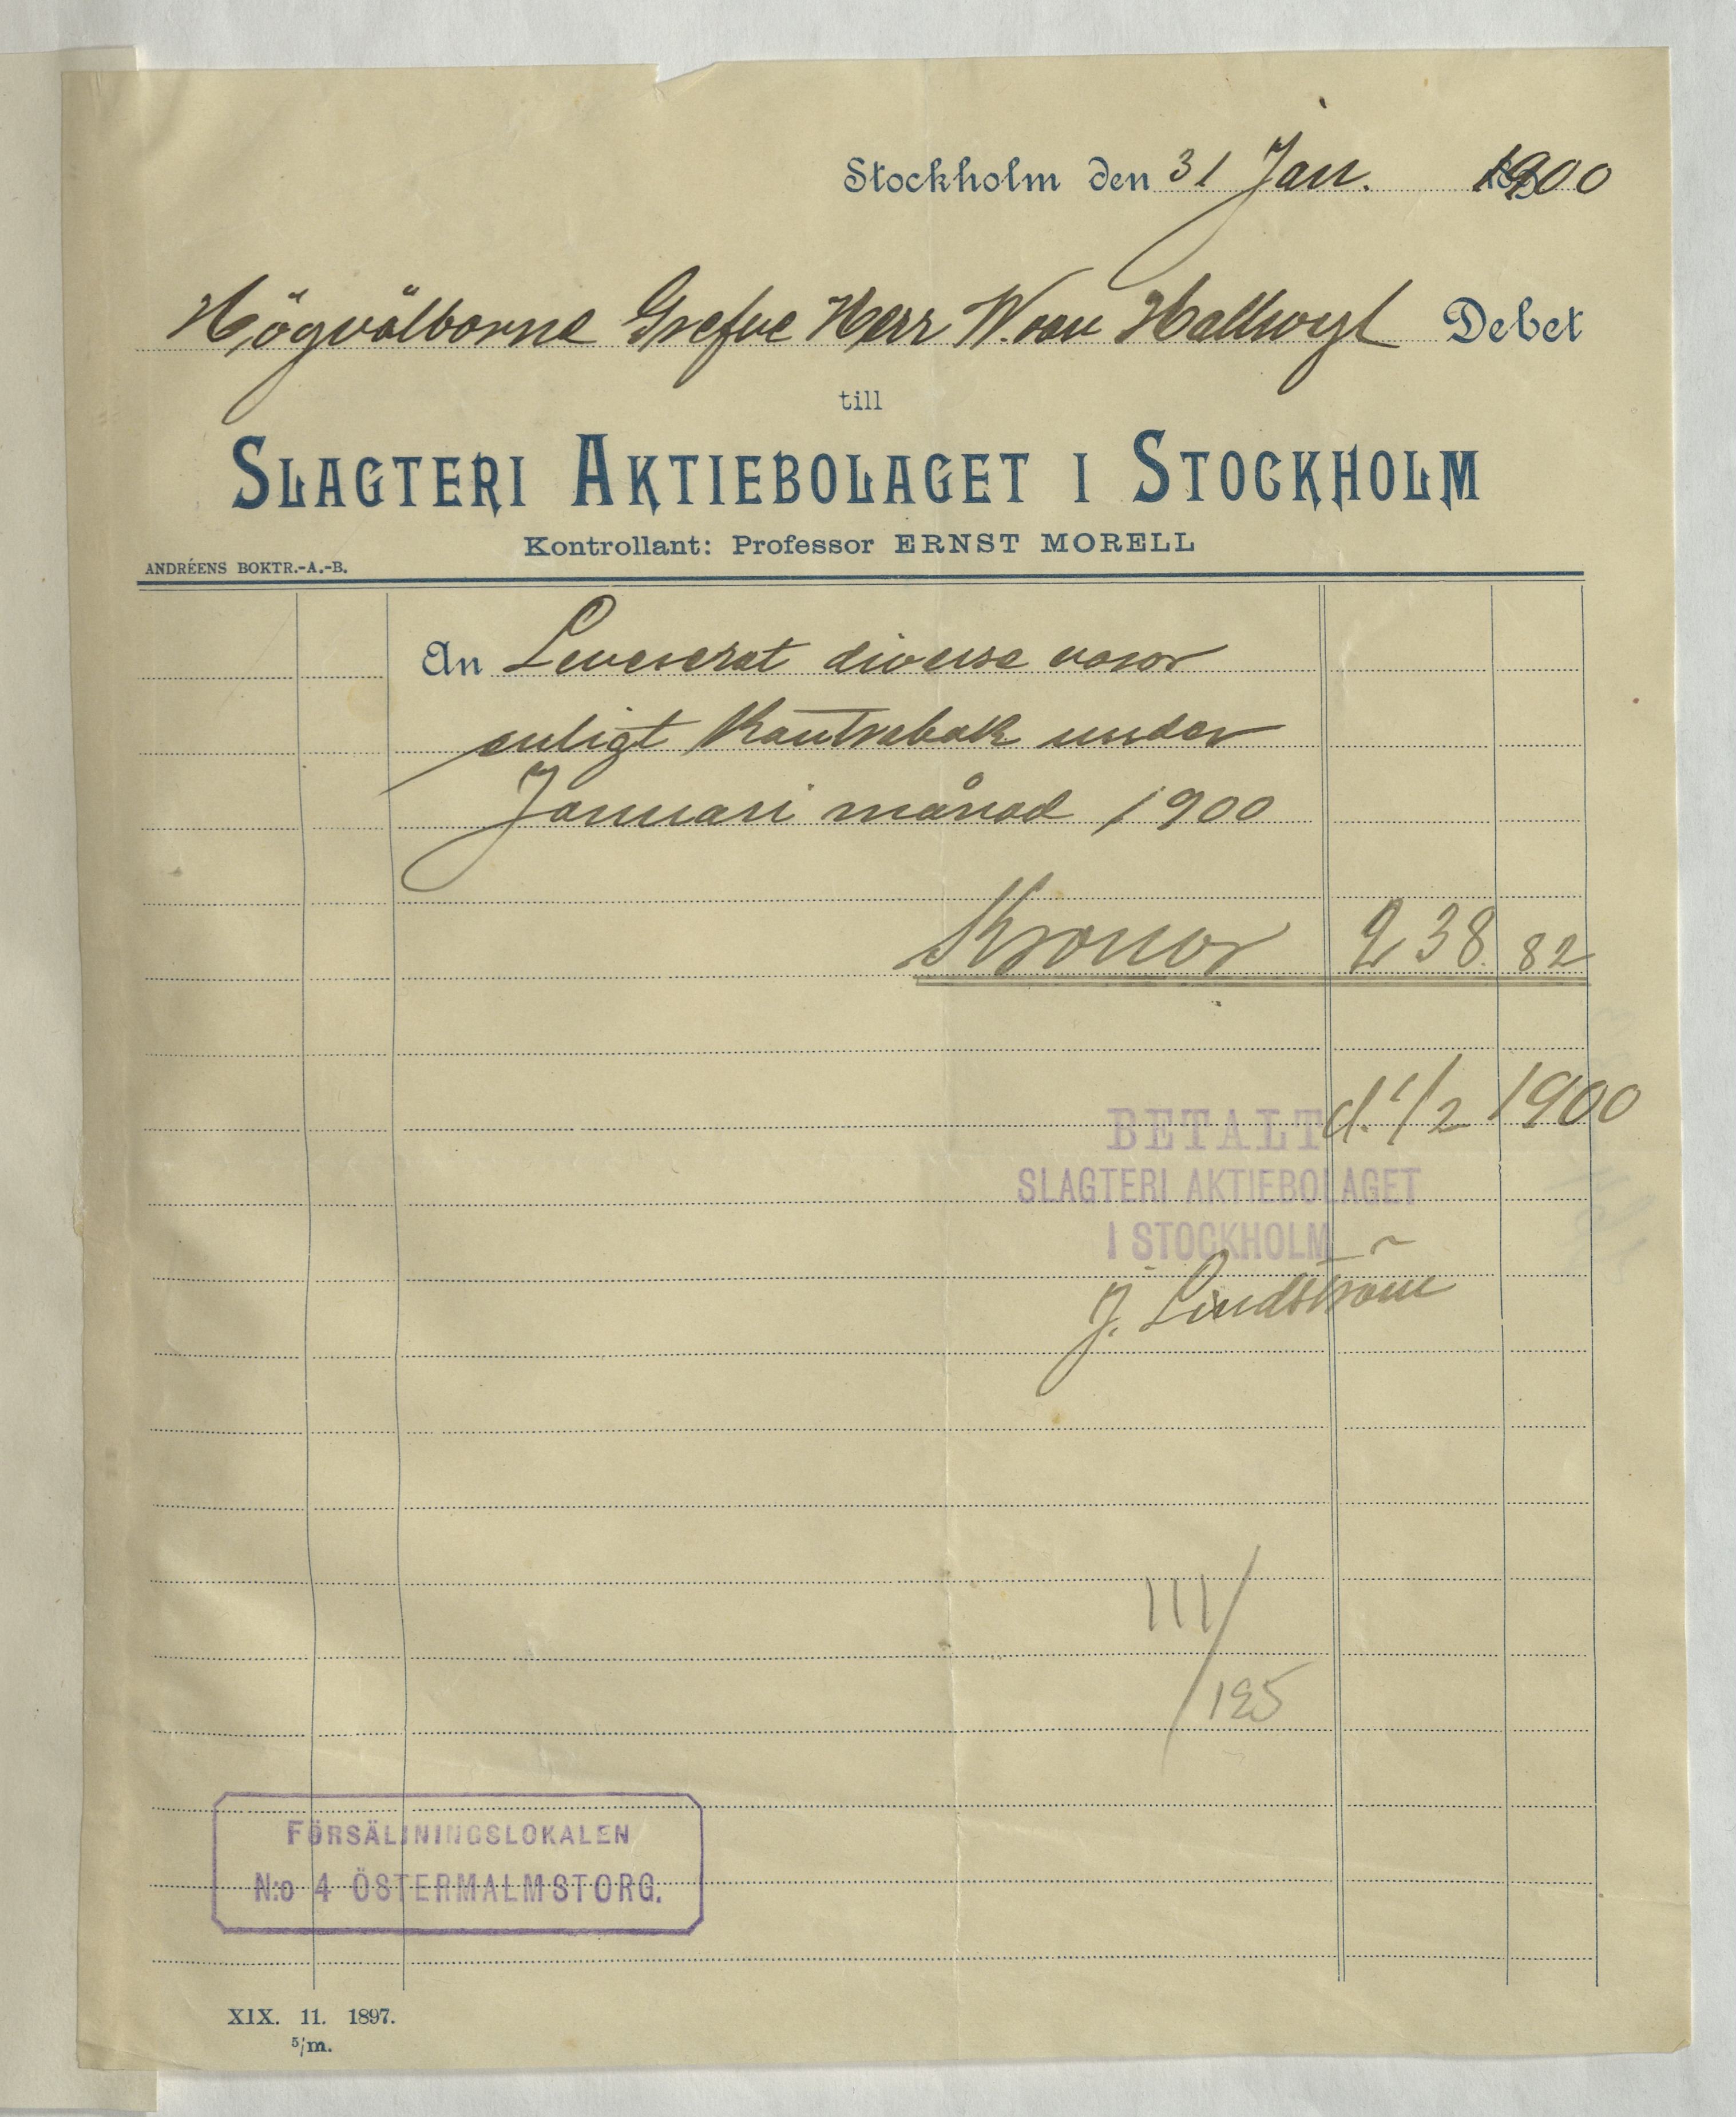 Stockholm den 31 Jan. 1900
Högvälborne Grefve Herr W. von Hallwyl Debet
till
SLAGTERI AKTIEBOLAGET I STOCKHOLM
Kontrollant: Professor ERNST MORELL
ANDRÉENS BOKTR.-A.-B.
An Levererat diverse varor
enligt Kontrabok under
Januari månad 1900
Kronor 238. 82
BETALT d. 1/2 1900
SLAGTERI AKTIEBOLAGET
I STOCKHOLM
J. Lindström
111/
125
FÖRSÄLJNINGSLOKALEN
N:o 4 ÖSTERMALMSTORG.
XIX. 11. 1897.
5/m.